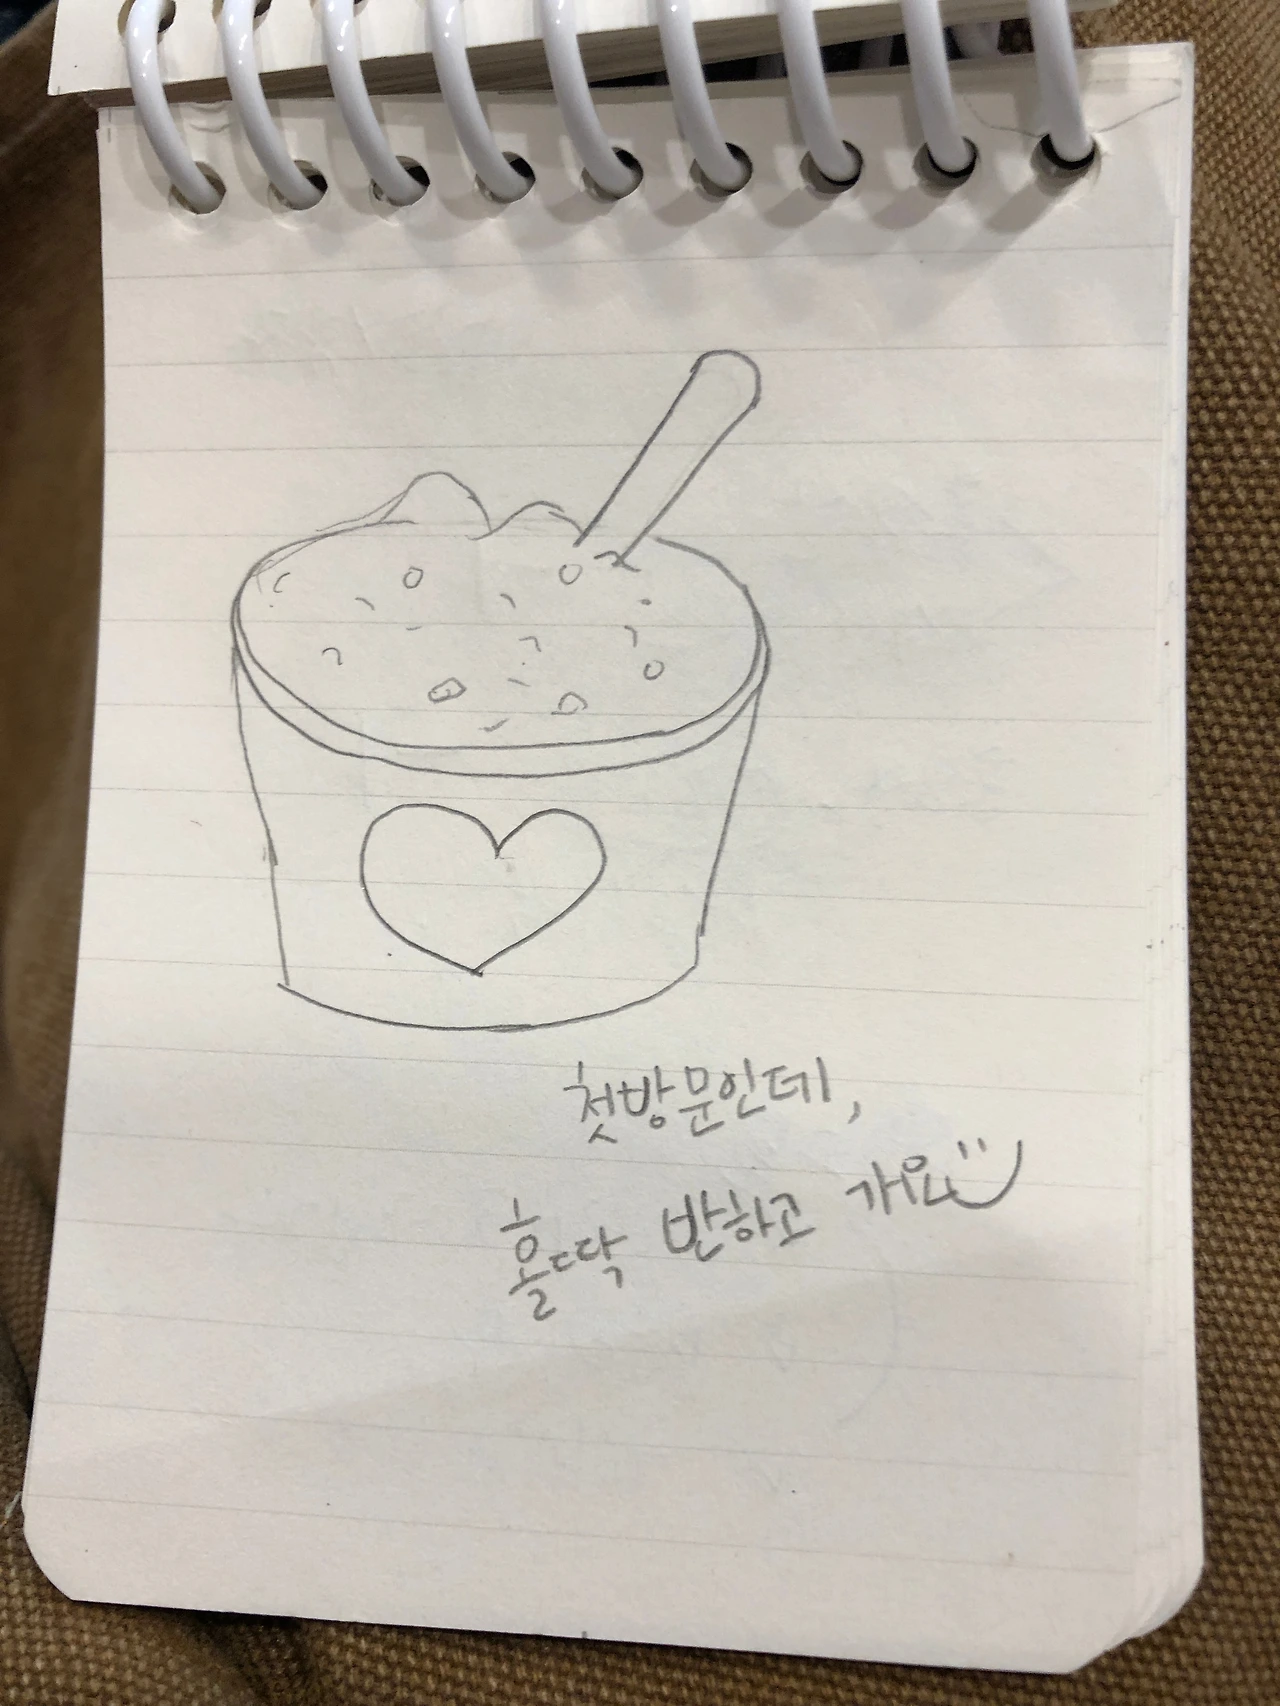 첫방문인데,
홀딱 반하고 가요